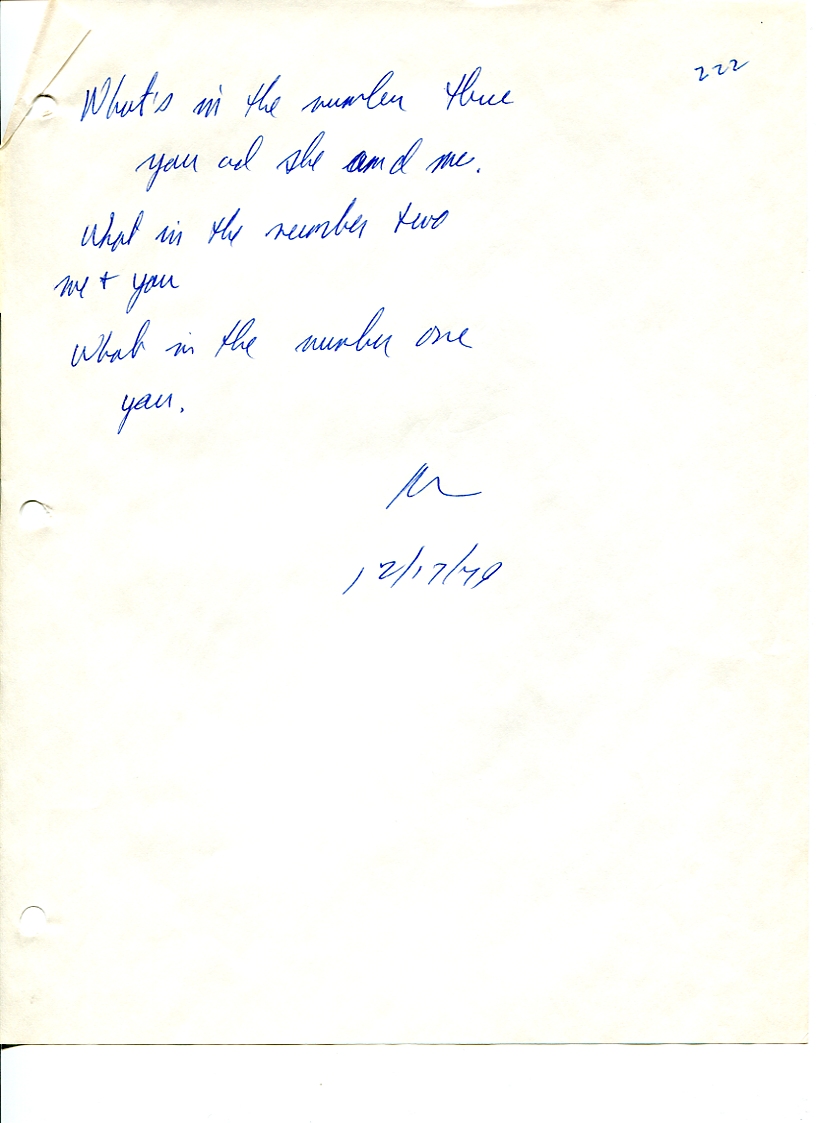 222
What's in the number three
you ad she and me.
What in the number two
me + you
What in the number one
you.
12/17/79